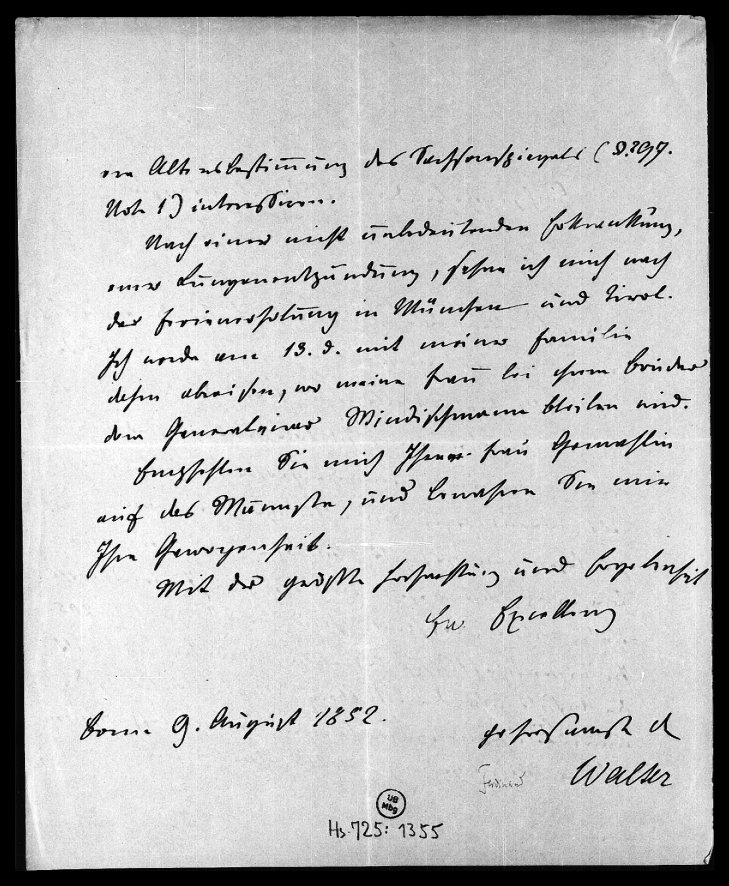 die Altersbestimmung des Sachsenspiegels (S. 297.
Note 1) interessiren.
Nach einer nicht unbedeutenden Erkrankung,
einer Lungenentzündung, sehne ich mich nach
der Ferienerholung in München und Tirol.
Ich werde am 13. d. mit meiner Familie
dahin abreisen, wo meine Frau bei ihrem Bruder
dem Generalvicar Windischmann bleiben wird.
Empfehlen Sie mich Ihrer Frau Gemahlin
auf das Wärmste, und bewahren Sie mir
Ihre Gewogenheit.
Mit der größten Hochachtung und Ergebenheit
Ew. Excellenz
Bonn 9. August 1852.
gehorsamster
Ferdinand Walter
UB
Mbg
Hs. 725: 1355